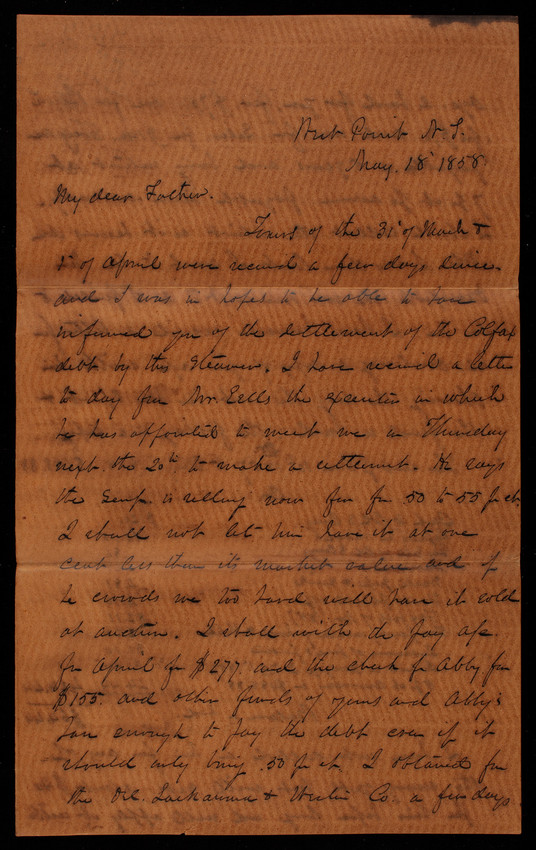 West Point N. Y.
May. 18' 1858
My dear Father.
Yours of the 31' of March &
5' of April were received a few days since.
and I was in hopes to be able to have
informed you of the settlement of the Colfax
debt by this Steamer. I have received a letter
to day from Mr. Eells the executor in which
he has appointed to meet me on Thursday
next the 20th to make a settlement. He says
the is selling now for from 50 to 55 pr ct.
I shall not let him have it at one
cent less than its market value and if
he crowds me too hard will have it sold
at auction. I shall with the pay a/c
for April for $277 and the check for Abby for
$155 and other funds of yours and Abby's
have enough to pay the debt even if it
should only bring 50 pr ct. I obtained from
the Del. Lackawana & Western Co. a few days